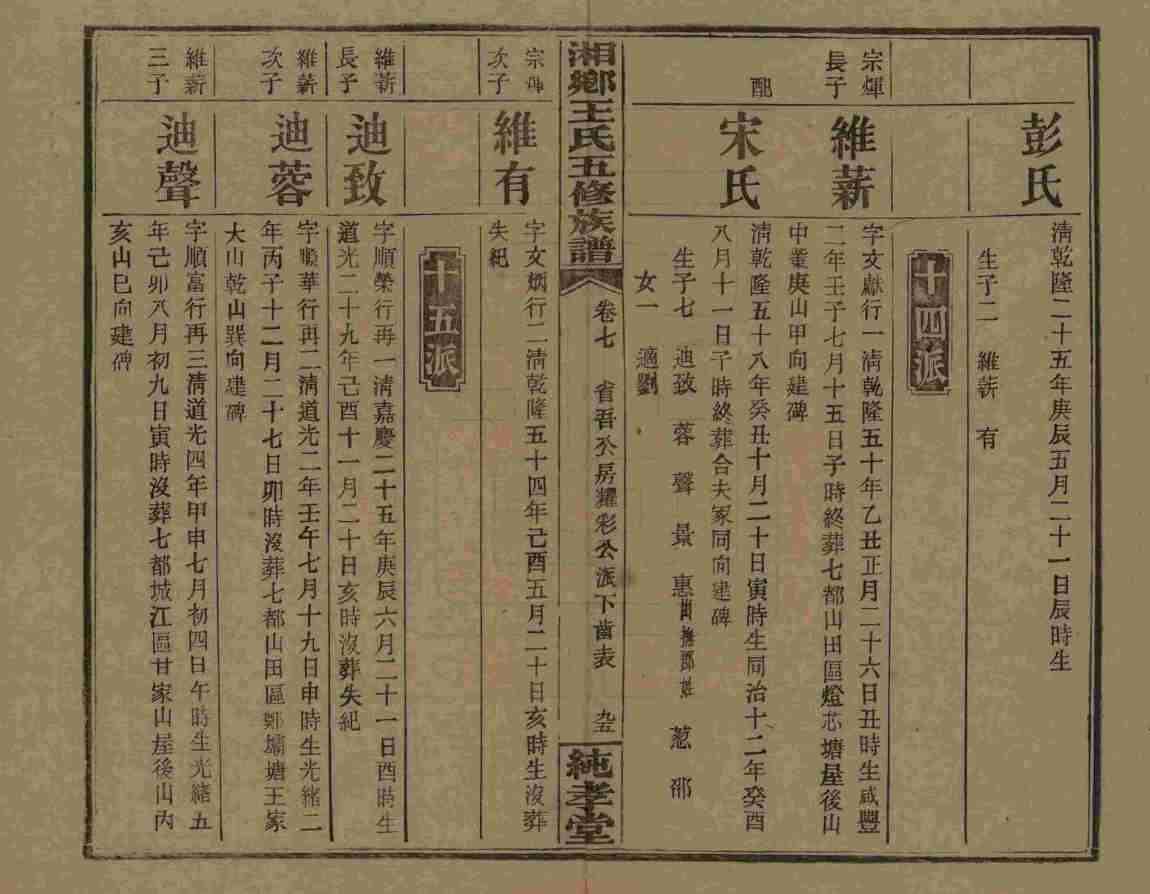 彭氏
淸乾隆二十五年庚辰五月二十一日辰時生
生子二 維薪 有
十四派
宗煇長子
維薪
字文獻行一淸乾隆五十年乙丑正月二十六日丑時生咸豐
二年壬子七月十五日子時終葬七都山田區燈芯塘屋後山
中董庚山甲向建碑
配
宋氏
淸乾隆五十八年癸丑十月二十日寅時生同治十二年癸酉
八月十一日子時終葬合夫冢同向建碑
生子七 迪致 蓉 聲 景 惠 葱 邵
女一 適劉
湘鄉王氏五修族譜
卷七 省吾公房耀彩公派下齒表 九五
純孝堂
宗煇次子
維有
字文炳行二淸乾隆五十四年己酉五月二十日亥時生沒葬
失紀
十五派
維薪長子
迪致
字順榮行再一淸嘉慶二十五年庚辰六月二十一日酉時生
道光二十九年己酉十一月二十日亥時沒葬失紀
維薪次子
迪蓉
字順華行再二淸道光二年壬午七月十九日申時生光緖二
年丙子十二月二十七日卯時沒葬七都山田區鄭壩塘王家
大山乾山巽向建碑
維薪三子
迪聲
字順富行再三淸道光四年甲申七月初四日午時生光緖五
年己卯八月初九日寅時沒葬七都城江區甘家山屋後山內
亥山巳向建碑